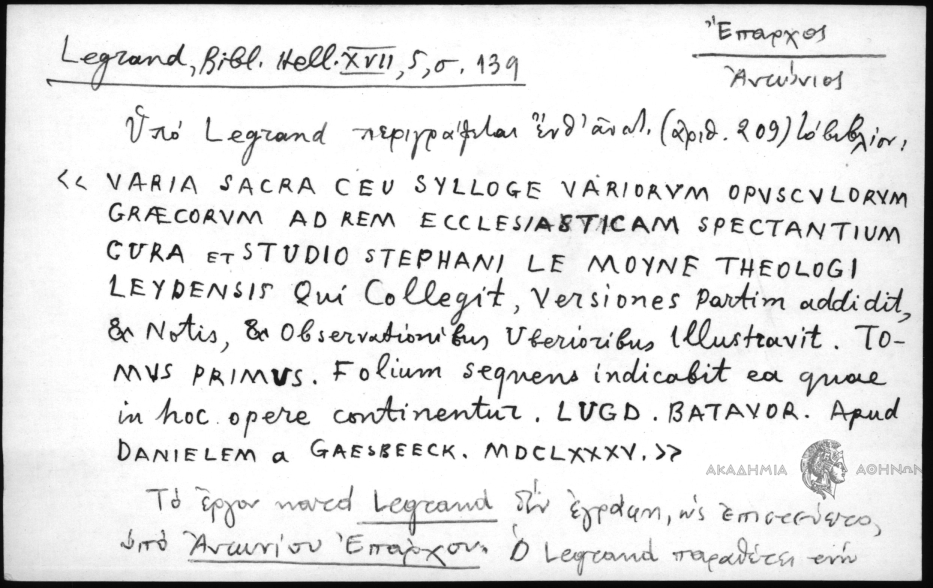 Ἔπαρχος
Ἀντώνιος
Legrand, Bibl. Hell. XVII, 5, σ. 139
Ὑπό Legrand περιγράφεται ἔνθ' ἀνωτ. (ἀριθ. 209) τό βιβλίον:
<< VARIA SACRA CEU SYLLOGE VARIORVM OPVSCVLORVM
GRÆCORVM AD REM ECCLESIASTICAM SPECTANTIUM
CURA ET STUDIO STEPHANI LE MOYNE THEOLOGI
LEYDENSIS Qui Collegit, Versiones partim addidit,
& Notis, & Observationibus Uberioribus Illustravit. TO-
MVS PRIMVS. Folium sequens indicabit ea quae
in hoc opere continentur. LUGD. BATAVOR. Apud
DANIELEM a GAESBEECK. MDCLXXXV. >>
ΑΚΑΔΗΜΙΑ ΑΘΗΝΩΝ
Τό ἔργον κατά Legrand δέν ἐγράφη, ὡς ἐπιστεύετο,
ὑπό Ἀντωνίου Ἐπάρχου. Ὁ Legrand παραθέτει τήν